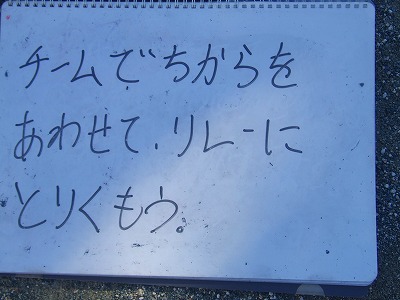 チームでちからを
あわせて、リレーに
とりくもう。